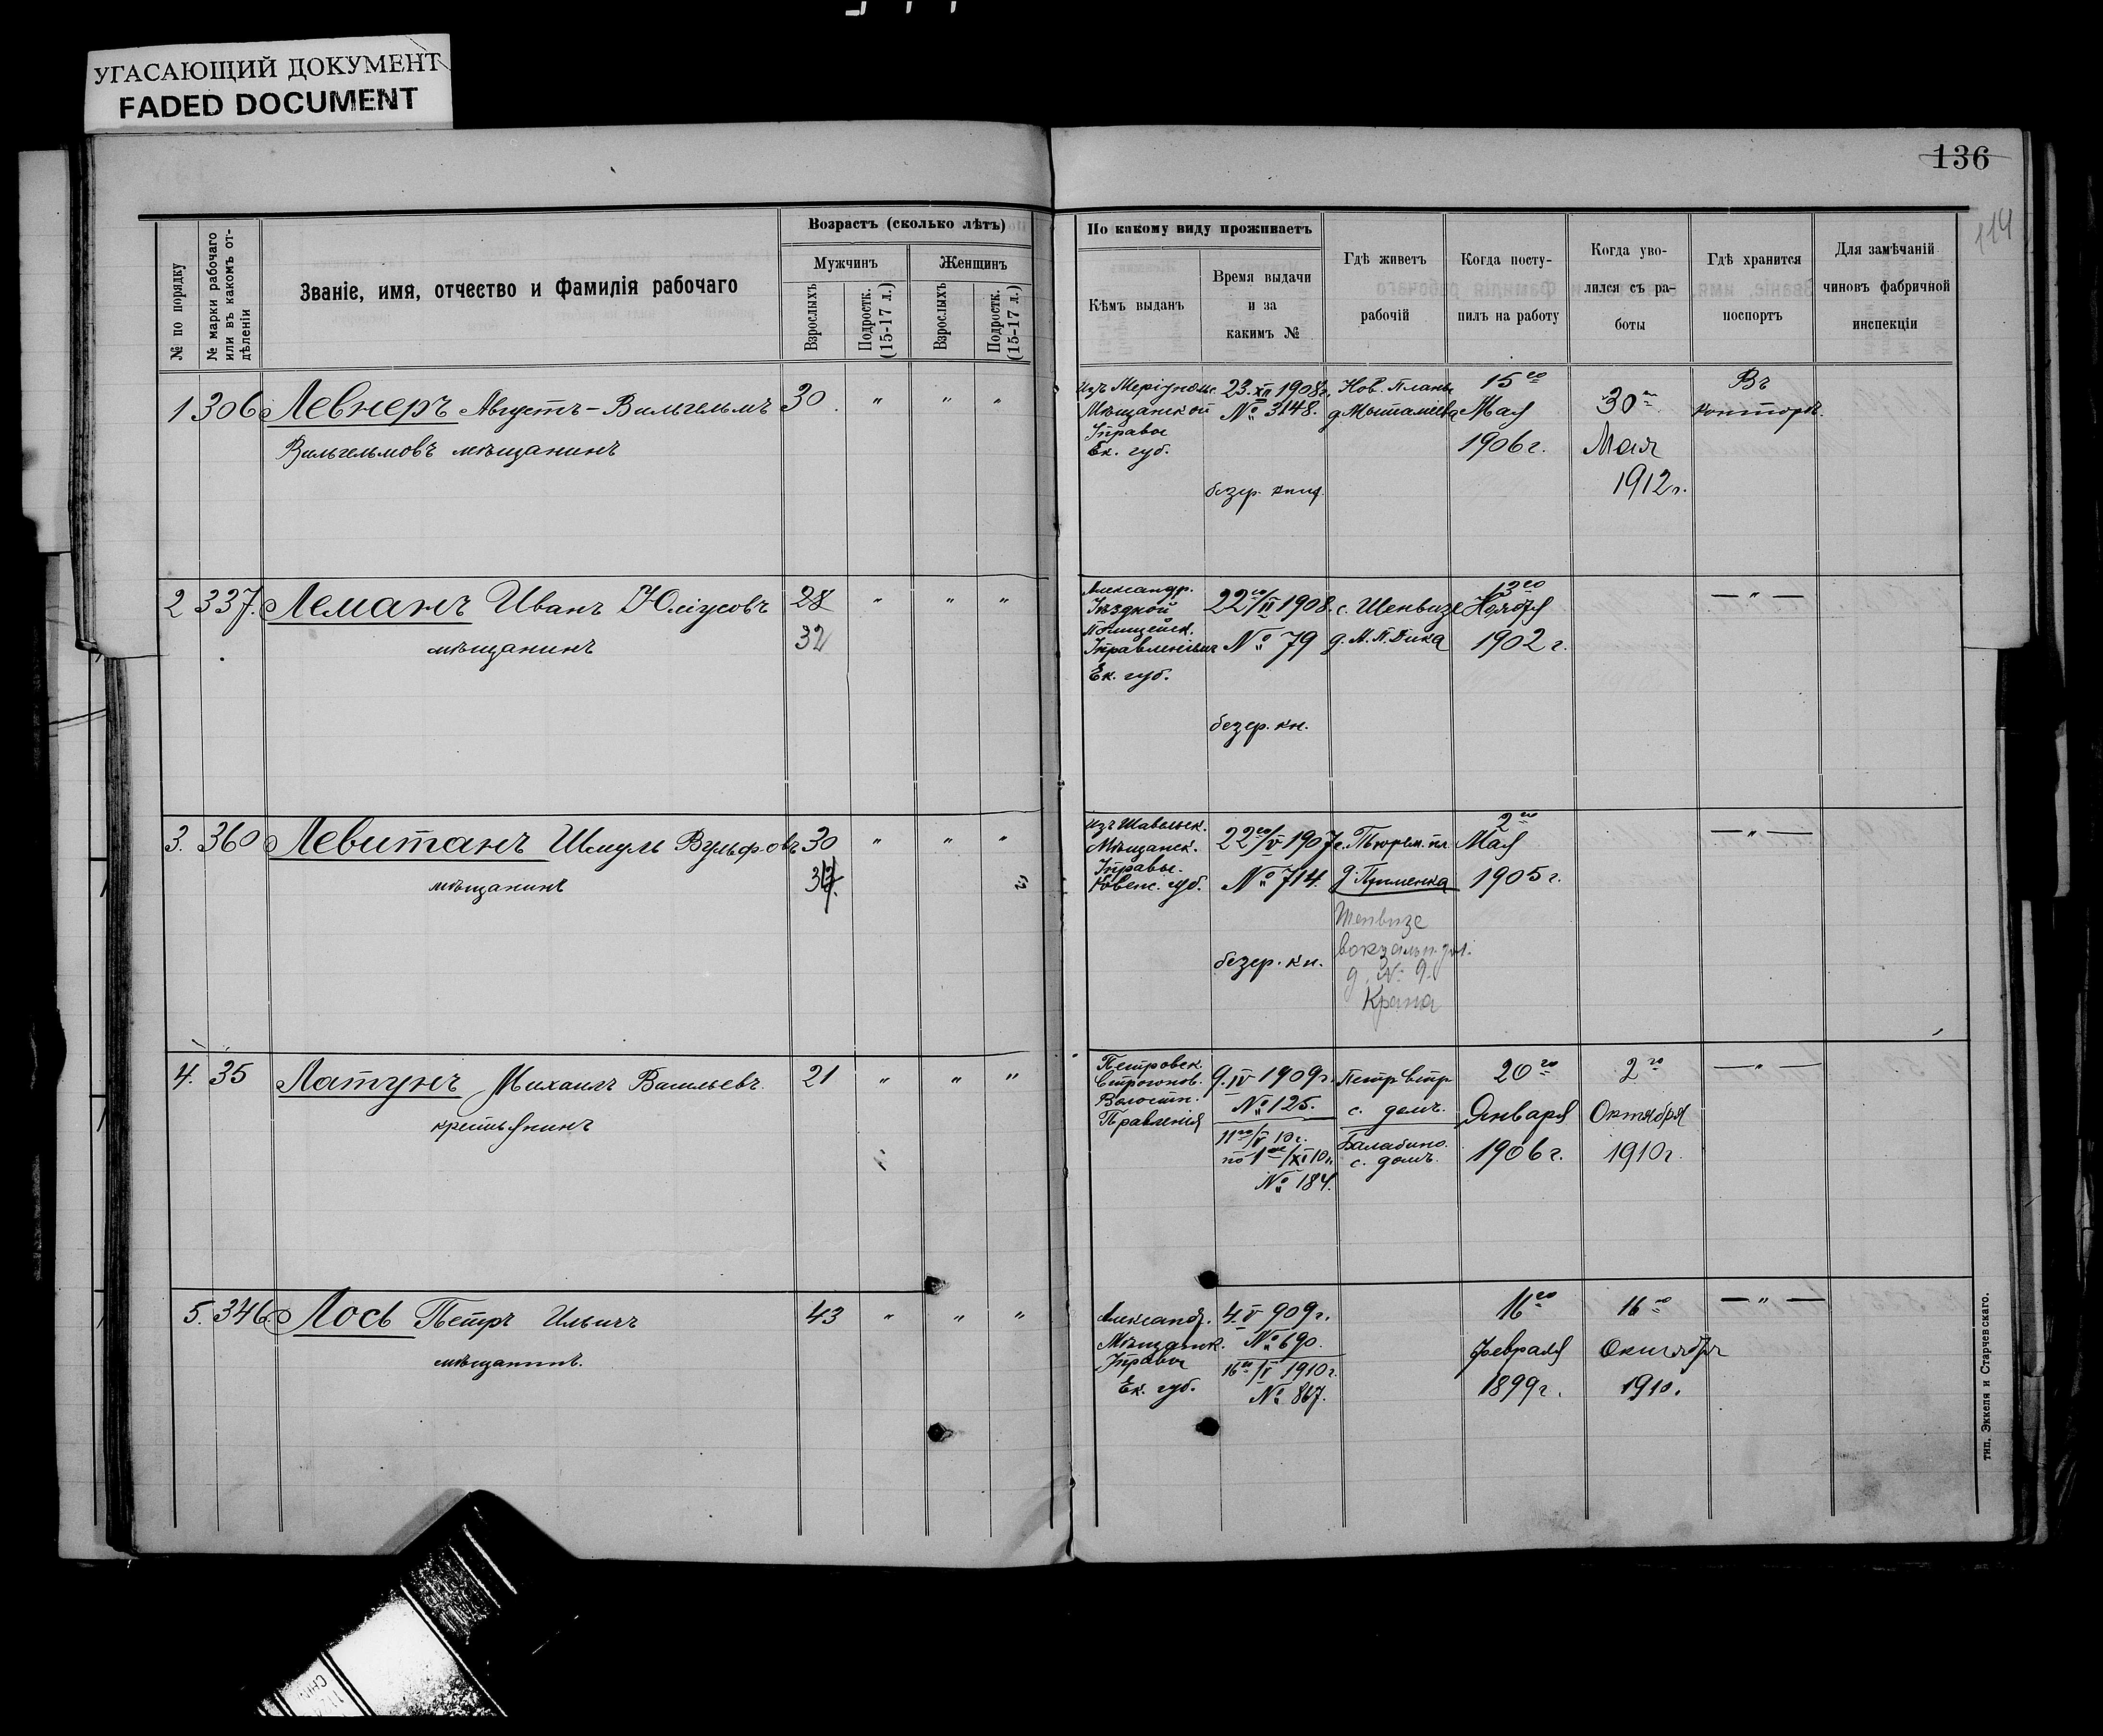 УГАСАЮЩИЙ ДОКУМЕНТ
FADED DOCUMENT
136
114
№ по порядку
№ марки рабочаго
или въ какомъ от-
дѣленіи
Званіе, имя, отчество и фамилія рабочаго
Возрастъ (сколько лѣтъ)
Мужчинъ
Женщинъ
Взрослыхъ
Подростк.
(15-17 л.)
Взрослыхъ
Подростк.
(15-17 л.)
По какому виду проживаетъ
Кѣмъ выданъ
Время выдачи
и за
какимъ №
Гдѣ живетъ
рабочій
Когда посту-
пилъ на работу
Когда уво-
лился съ ра-
боты
Гдѣ хранится
поспортъ
Для замѣчаній
чиновъ фабричной
инспекціи
1 306 Левнеръ Августъ-Вильгельмъ 30 " " "
Вильгельмовъ мѣщанинъ
Изъ Маріупольс.
Мѣщанской
Управы
Ек. губ.
23. XII 1908 г.
№ 3148.
безср. книж.
Нов. Планы
15го
Мая
1906 г.
30го
Мая
1912 г.
Въ
конторѣ.
2 337. Леманъ Иванъ Юліусовъ 28 " " "
мѣщанинъ 32
Александр.
Уѣздной
Полицейск.
Управленіемъ
Ек. губ.
22го/II 1908.
№ 79
безср. кн.
с. Шенвизе
д. М. П. Дика
13го
Ноября
1902 г.
— " —
3. 360 Левитанъ Шмуль Вульфовъ 30 " " "
мѣщанинъ
Изъ Шавельск.
Мѣщанск.
Управы.
Ковенс. губ.
22го/V 1907 г.
№ 714.
безср. кн.
Тюрем. пл.
Шенвизе
вокзальн. ул.
д. № 9.
2го
Мая
1905 г.
— " —
4. 35 Латунъ Михаилъ Васильевъ. 21 " " "
крестьянинъ
Петровск.
Строгонов.
Волостн.
Правленія
9. IV 1909 г.
№ 125.
11го/V 10 г.
по 1ое/XI 10 г.
№ 184.
с. домъ.
Балабино.
с. домъ.
20го
Января
1906 г.
2го
Октября
1910 г.
— " —
5. 346. Лось Петръ Ильичъ 43 " " "
мѣщанинъ.
Александр.
Мѣщанск.
Управы
Ек. губ.
4. V 909 г.
№ 690.
16го/V 1910 г.
№ 867.
16го
Февраля
1899 г.
16го
Октября
1910.
— " —
тип. Эккеля и Старчевскаго.